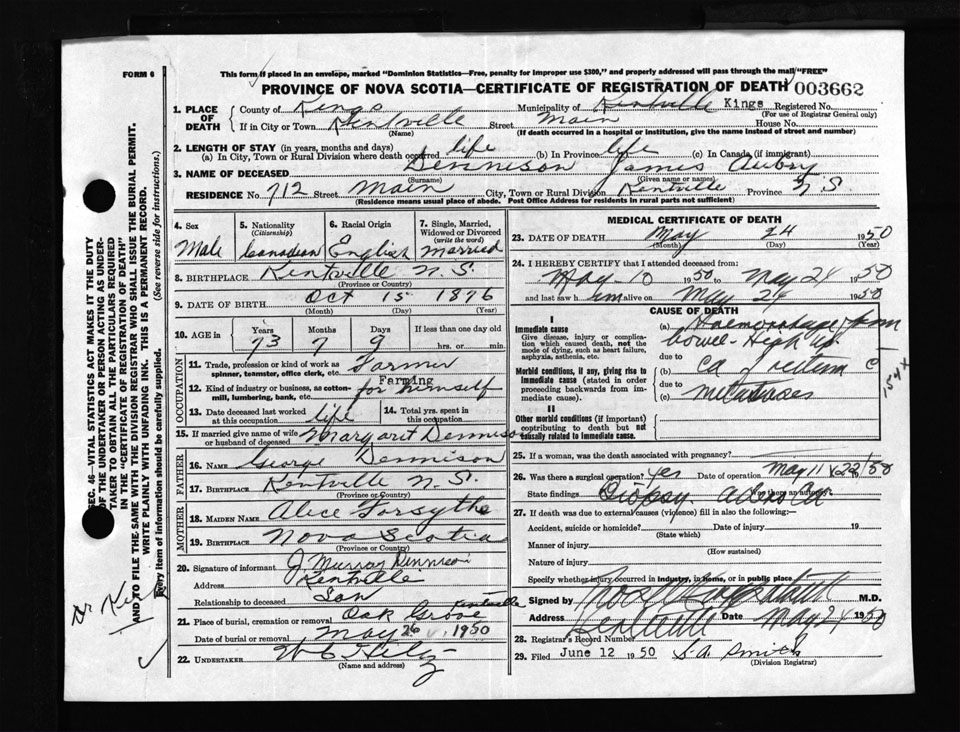 FORM 6
This form if placed in an envelope, marked "Dominion Statistics—Free, penalty for improper use $300," and properly addressed will pass through the mail "FREE"
PROVINCE OF NOVA SCOTIA—CERTIFICATE OF REGISTRATION OF DEATH 003662
1. PLACE OF DEATH
County of Kings Municipality of Kentville Kings Registered No.
(For use of Registrar General only)
If in City or Town Kentville Street Main House No.
(Name) (If death occurred in a hospital or institution, give the name instead of street and number)
2. LENGTH OF STAY (in years, months and days)
(a) In City, Town or Rural Division where death occurred life (b) In Province life (c) In Canada (if immigrant)
3. NAME OF DECEASED Dennison James Aubry
(Surname) (Given name or names)
RESIDENCE No. 712 Street Main City, Town or Rural Division Kentville Province N.S
(Residence means usual place of abode. Post Office Address for residents in rural parts not sufficient)
4. Sex
Male
5. Nationality
(Citizenship)
Canadian
6. Racial Origin
English
7. Single, Married, Widowed or Divorced
(write the word)
Married
8. BIRTHPLACE Kentville N.S.
(Province or Country)
9. DATE OF BIRTH Oct 15 1876
(Month) (Day) (Year)
10. AGE in Years Months Days If less than one day old
73 7 9 hrs. or min.
OCCUPATION
11. Trade, profession or kind of work as spinner, teamster, office clerk, etc. Farmer
12. Kind of industry or business, as cotton-mill, lumbering, bank, etc. Farming for himself
13. Date deceased last worked at this occupation life
14. Total yrs. spent in this occupation
15. If married give name of wife or husband of deceased Margaret Dennison
FATHER
16. Name George Dennison
17. Birthplace Kentville N.S.
(Province or Country)
MOTHER
18. MAIDEN NAME Alice Forsythe
19. BIRTHPLACE Nova Scotia
(Province or Country)
20. Signature of informant J. Murray Dennison
Address Kentville
Relationship to deceased Son
21. Place of burial, cremation or removal Oak Grove Kentville
Date of burial or removal May 26 1950
22. UNDERTAKER
(Name and address)
MEDICAL CERTIFICATE OF DEATH
23. DATE OF DEATH May 24 1950
(Month) (Day) (Year)
24. I HEREBY CERTIFY that I attended deceased from:
May 10 1950 to May 24 1950
and last saw him alive on May 24 1950
CAUSE OF DEATH
I
Immediate cause
Give disease, injury or complication which caused death, not the mode of dying, such as heart failure, asphyxia, asthenia, etc.
(a) Haemorrhage from bowel - High up
due to
Morbid conditions, if any, giving rise to immediate cause (stated in order proceeding backwards from immediate cause).
(b) Ca of rectum c
due to
(c) metastases
154 x
II
Other morbid conditions (if important) contributing to death but not causally related to immediate cause.
25. If a woman, was the death associated with pregnancy?
26. Was there a surgical operation? yes Date of operation May 11 & 22/50
State findings Biopsy. Adeno Ca Was there an autopsy?
27. If death was due to external causes (violence) fill in also the following:—
Accident, suicide or homicide? Date of injury 19
(State which)
Manner of injury
(How sustained)
Nature of injury
Specify whether injury occurred in industry, in home, or in public place
Signed by M.D.
Address Kentville Date May 24 1950
28. Registrar's Record Number
29. Filed June 12 1950 S.A. Smith
(Division Registrar)
SEC. 46—VITAL STATISTICS ACT MAKES IT THE DUTY
OF THE UNDERTAKER OR PERSON ACTING AS UNDER-
TAKER TO OBTAIN ALL THE PARTICULARS REQUIRED
IN THE "CERTIFICATE OF REGISTRATION OF DEATH"
AND TO FILE THE SAME WITH THE DIVISION REGISTRAR WHO SHALL ISSUE THE BURIAL PERMIT.
WRITE PLAINLY WITH UNFADING INK. THIS IS A PERMANENT RECORD.
Every item of information should be carefully supplied. (See reverse side for instructions.)